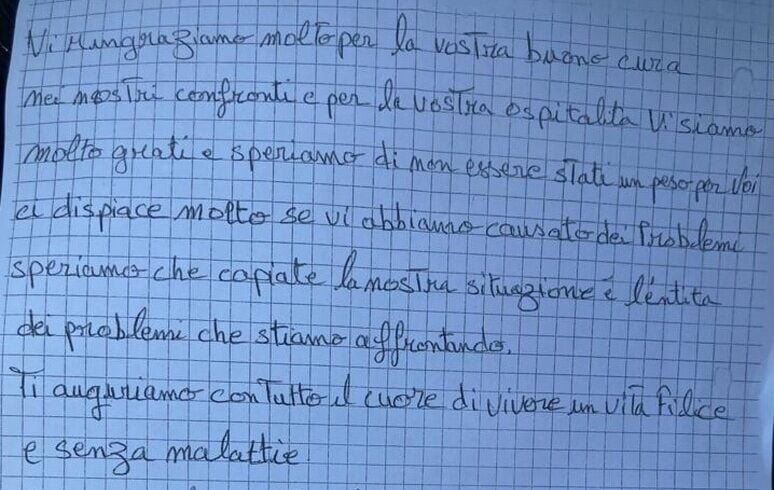 Vi ringraziamo molto per la vostra buono cura
nei nostri confronti e per la vostra ospitalita Vi siamo
molto grati e speriamo di non essere stati un peso per Voi
ci dispiace molto se vi abbiamo causato dei Problemi
speriamo che capiate la nostra situazione é l'éntita
dei problemi che stiamo affrontando.
Ti auguriamo con Tutto il cuore di vivere un vita filice
e senza malattie